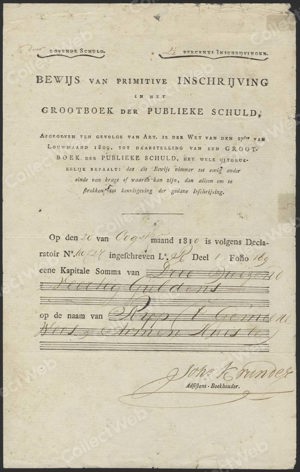 LOPENDE SCHULD.
PERCENTS INSCHRIJVINGEN.
BEWIJS VAN PRIMITIVE INSCHRIJVING
IN HET
GROOTBOEK DER PUBLIEKE SCHULD,
AFGEGEVEN TEN GEVOLGE VAN ART. 12 DER WET VAN DEN VAN
LOUWMAAND 1809, TOT DAARSTELLING VAN EEN GROOT-
BOEK DER PUBLIEKE SCHULD, HET WELK UITDRUK-
KELIJK BEPAALT: dat dit Bewijs nimmer tot eenig ander
einde van kragt of waarde kan zijn, dan alleen om te
strekken tot aanwijzing der gedane Inschrijving.
Op den 20 van Oogst maand 1810 is volgens Decla-
ratoir N°. ingeschreven L. Deel 1 Folio 169
eene Kapitale Somma van Duizend
Veertig Guldens
op de naam van
Wees
Joh.
Adsistent-Boekhouder.